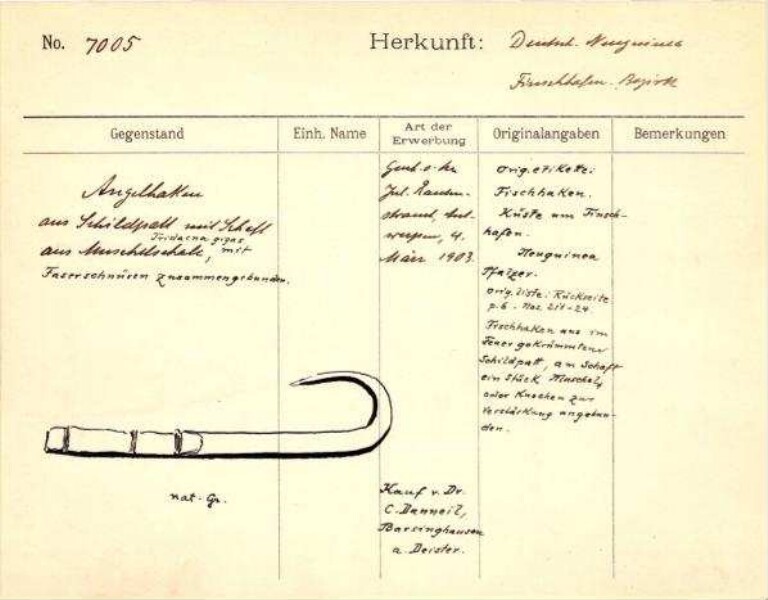 No. 7005
Herkunft: Deutsch. Neuguinea
Finschhafen. Bezirk
Gegenstand
Einh. Name
Art der Erwerbung
Originalangaben
Bemerkungen
Angelhaken
aus Schildpatt mit Schaft
Tridacna gigas
aus Muschelschale, mit
Faserschnüren zusammengebunden.
Jul.
werpen, 4.
März 1903.
Kauf v. Dr.
C. Danneil,
Barsinghausen
a. Deister.
Orig. etikette:
Fischhaken.
Küste um Finsch-
hafen.
Neuguinea
Orig. liste: Rückseite
p. 6. Nos 211-24.
Fischhaken aus im
Feuer gekrümmten
Schildpatt, am Schaft
ein Stück Muschel
oder Knochen zur
Verstärkung angebun-
den.
nat. Gr.